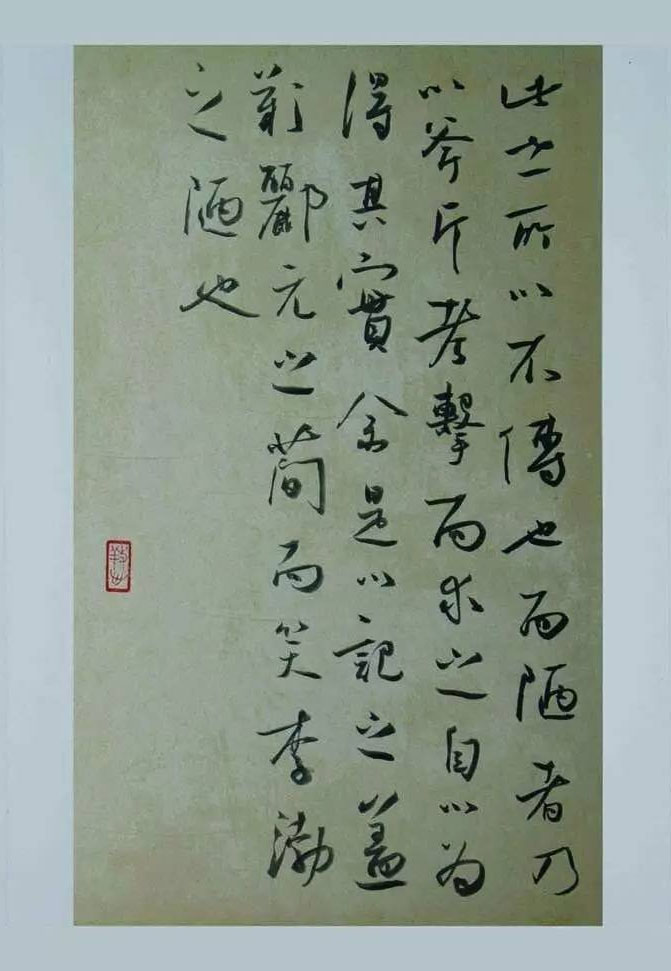 此世所以不傳也而陋者乃
以斧斤考擊而求之自以為
得其實余是以記之蓋
歎酈元之簡而笑李渤
之陋也